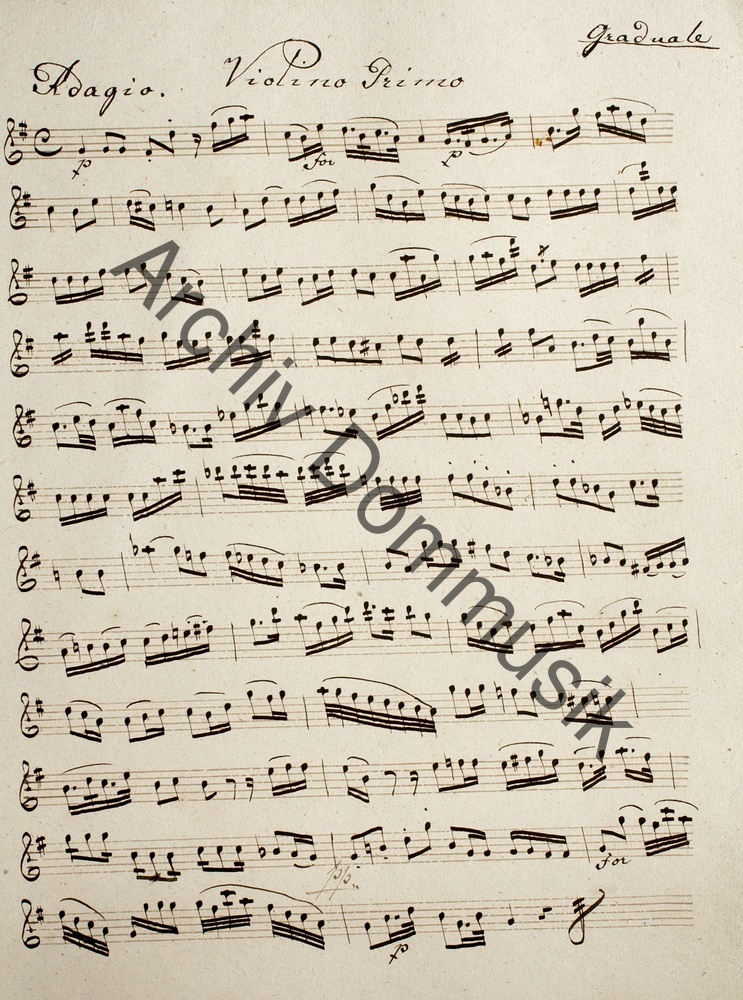 Graduale
Adagio. Violino Primo
p for p
for
pp
p
Archiv Dommusik